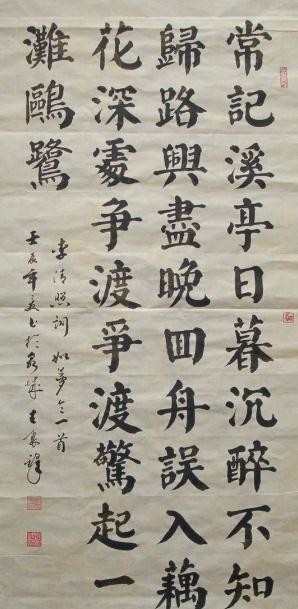 常記溪亭日暮沉醉不知
歸路興盡晚回舟誤入藕
花深處爭渡爭渡驚起一
灘鷗鷺
李清照詞如夢令一首
壬辰年夏書於